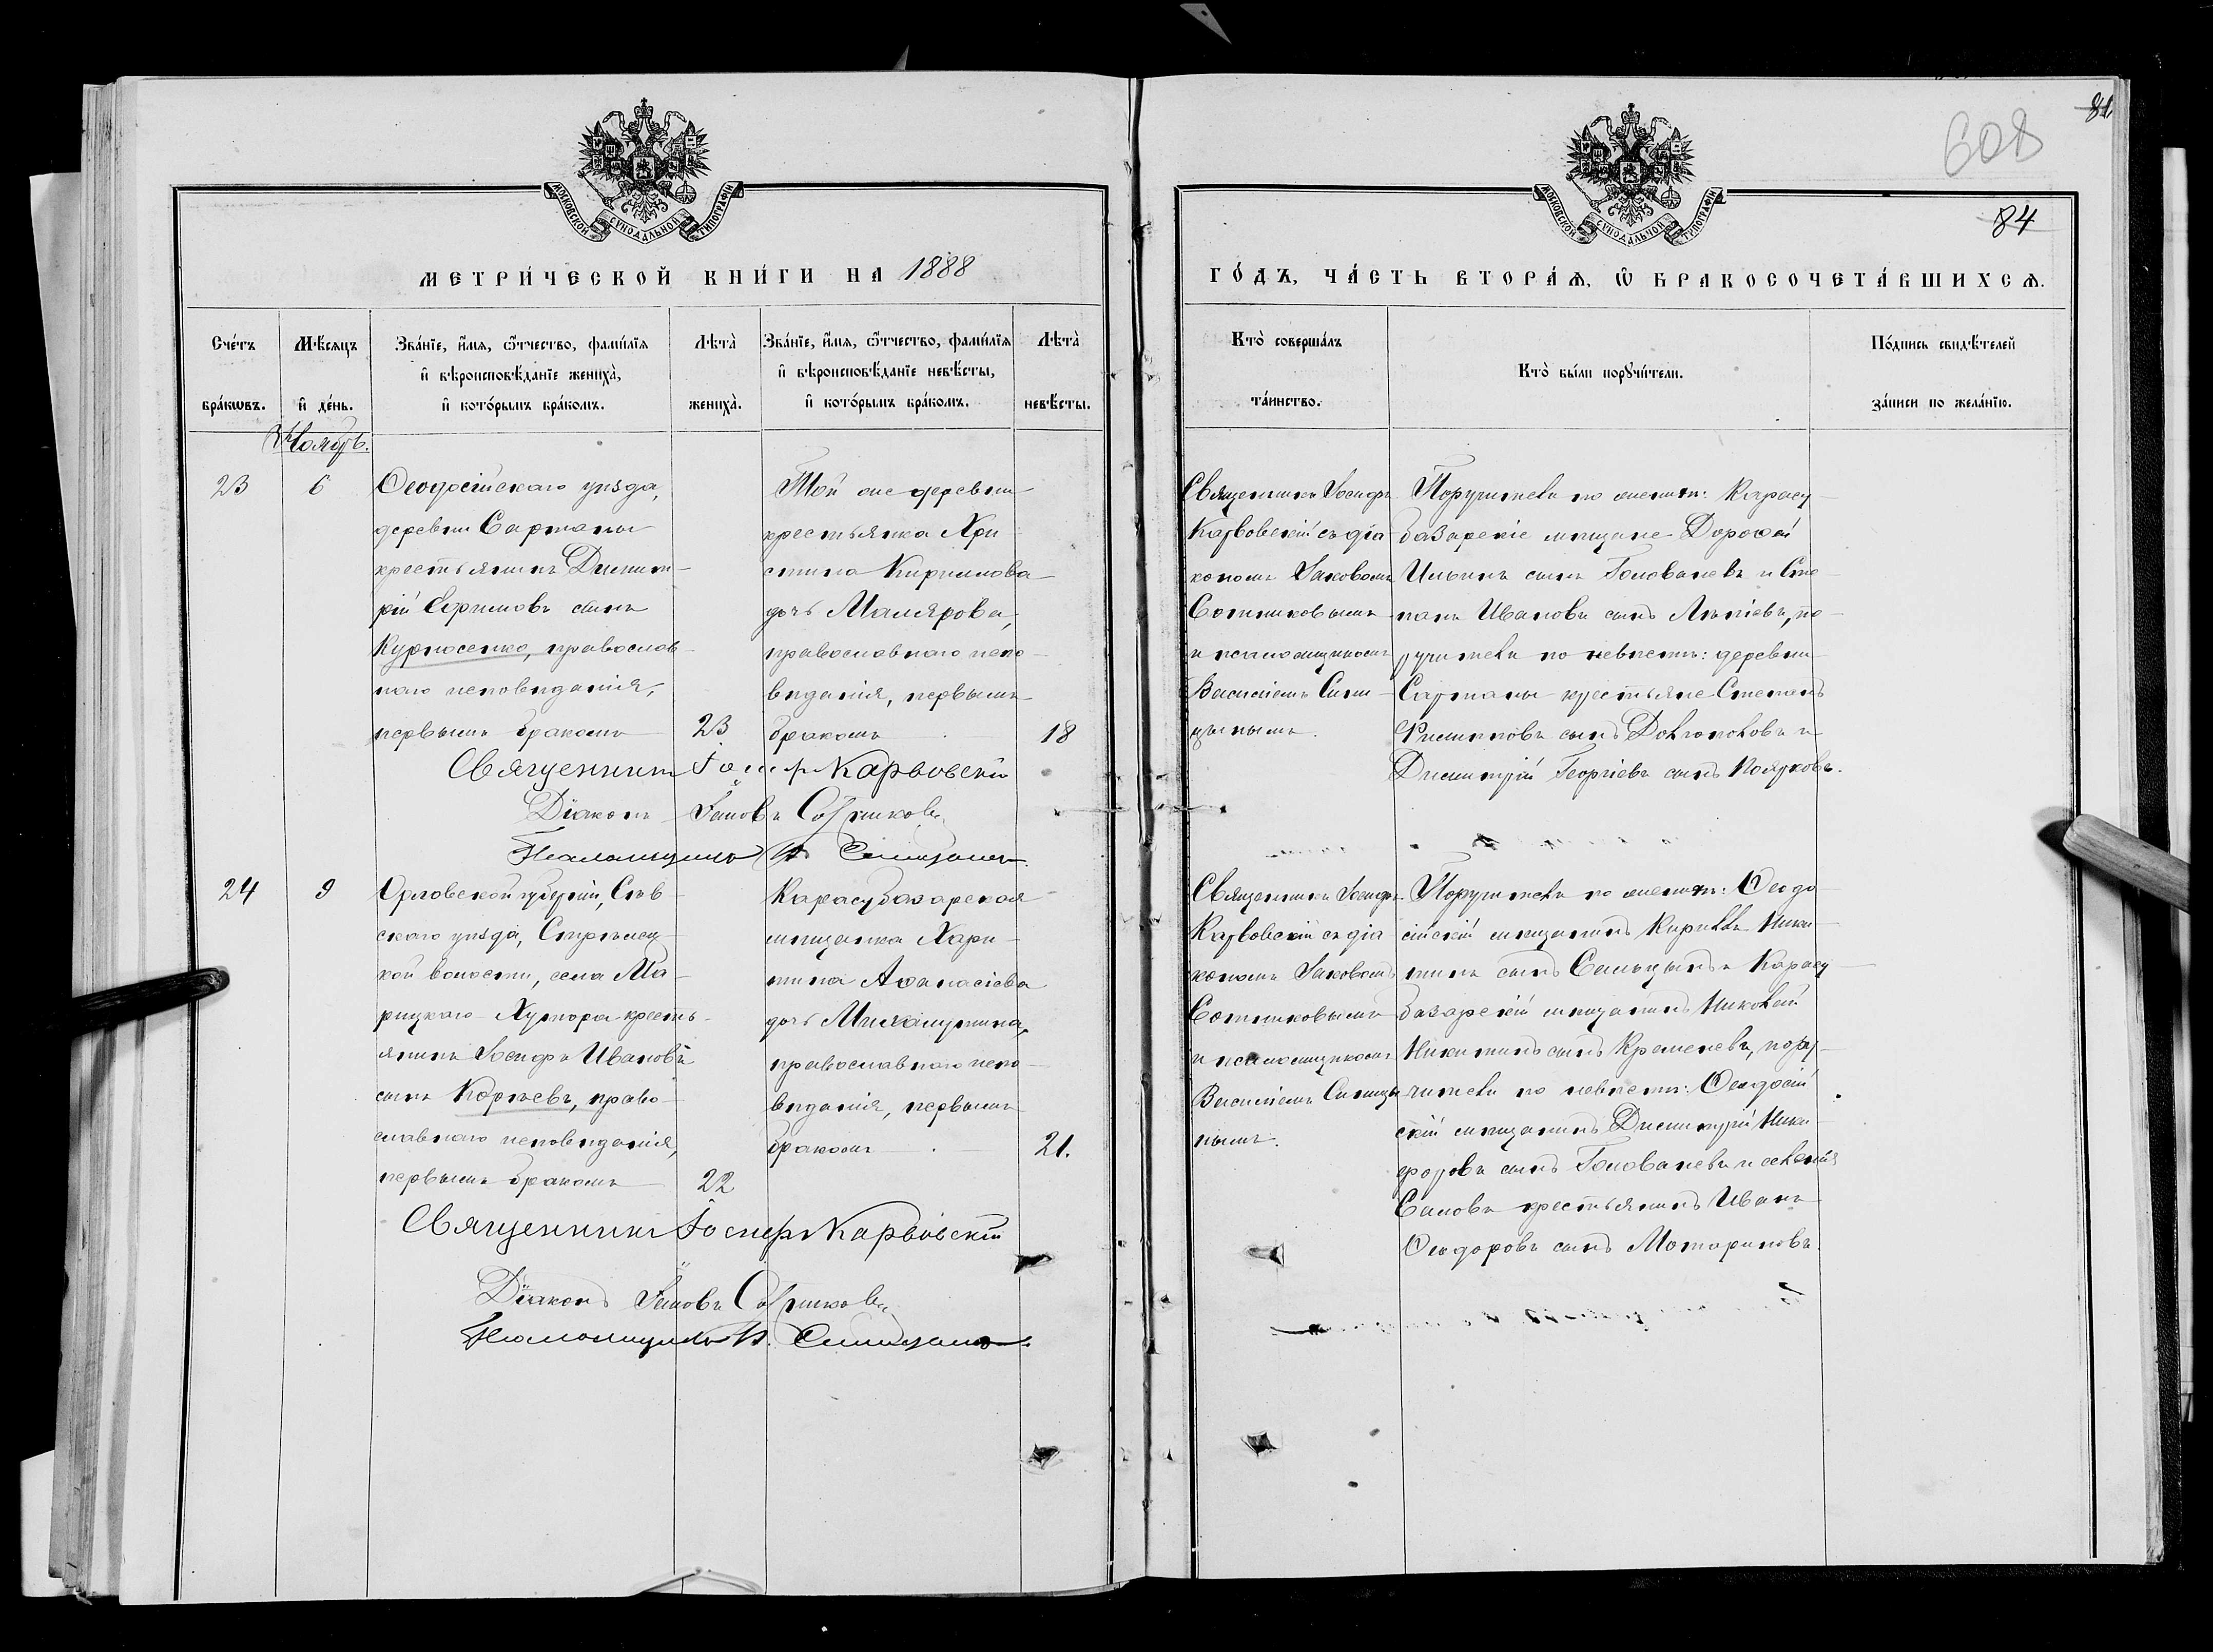 81
608
84
МОСКОВСКОЙ СУНОДАЛЬНОЙ ТИПОГРАФІИ
МОСКОВСКОЙ СУНОДАЛЬНОЙ ТИПОГРАФІИ
МЕТРИ́ЧЕСКОЙ КНИ́ГИ НА 1888
ГО́ДЪ, ЧА́СТЬ ВТОРА́Ѧ, Ѽ БРАКОСОЧЕТА́ВШИХСѦ.
Сче́тъ бра́кѡвъ.
Мѣ́сяцъ и҆ де́нь.
Зва́нїе, и҆́мѧ, ѻ҆́тчество, фами́лїѧ
и҆ вѣроисповѣ́данїе женихà,
и҆ кото́рымъ бра́комъ.
Лѣтà женихà.
Зва́нїе, и҆́мѧ, ѻ҆́тчество, фами́лїѧ
и҆ вѣроисповѣ́данїе невѣ́сты,
и҆ кото́рымъ бра́комъ.
Лѣтà невѣ́сты.
Кто̀ соверша́лъ та́инство.
Кто̀ бы́ли порꙋчи́тели.
По́дпись свидѣ́телей за́писи по жела́нїю.
Ноябрь.
23
6
Ѳеодосійскаго уѣзда,
деревни Сартаны
крестьянинъ Димит-
рій Ефимовъ сынъ
Курносенко, православ-
наго исповѣданія,
первымъ бракомъ
23
Той же деревни
крестьянка Хри-
стина Кириллова
дочь Малярова,
православнаго испо-
вѣданія, первымъ
бракомъ
18
Священникъ Іосифъ
Карвовскій съ діа-
кономъ Іаковомъ
Сотниковымъ
и псаломщикомъ
Василіемъ Сини-
цынымъ.
Поручители по женихѣ: Карасу-
базарскіе мѣщане Дороѳей
Ильинъ сынъ Голованевъ и Сте-
панъ Ивановъ сынъ, по-
ручители по невѣстѣ: деревни
Сартаны крестьяне Степанъ
Филипповъ сынъ и
Димитрій Георгіевъ сынъ Поярковъ.
Священникъ Іосифъ Карвовскій
Діаконъ Іаковъ Сотниковъ
Псаломщикъ В. Синицынъ
24
9
Орловской губерніи, Сѣв-
скаго уѣзда, Стрѣлец-
кой волости, села Ма-
рицкаго Хутора кресть-
янинъ Іосифъ Ивановъ
сынъ Корѣевъ, право-
славнаго исповѣданія,
первымъ бракомъ
22
Карасубазарская
мѣщанка Хари-
тина Аѳанасіева
дочь Михалутина,
православнаго испо-
вѣданія, первымъ
бракомъ
21.
Священникъ Іосифъ
Карвовскій съ діа-
кономъ Іаковомъ
Сотниковымъ
и псаломщикомъ
Василіемъ Синицы-
нымъ.
Поручители по женихѣ: Ѳеодо-
сійскій мѣщанинъ Кириллъ Ники-
тинъ сынъ и Карасу-
базарскій мѣщанинъ Николай
Никитинъ сынъ Кременевъ, пору-
чители по невѣстѣ: Ѳеодосій-
скій мѣщанинъ Димитрій Ники-
форовъ сынъ Голованевъ и селенія
Саловъ крестьянинъ Иванъ
Ѳеодоровъ сынъ Моториновъ.
Священникъ Іосифъ Карвовскій
Діаконъ Іаковъ Сотниковъ
Псаломщикъ В. Синицынъ